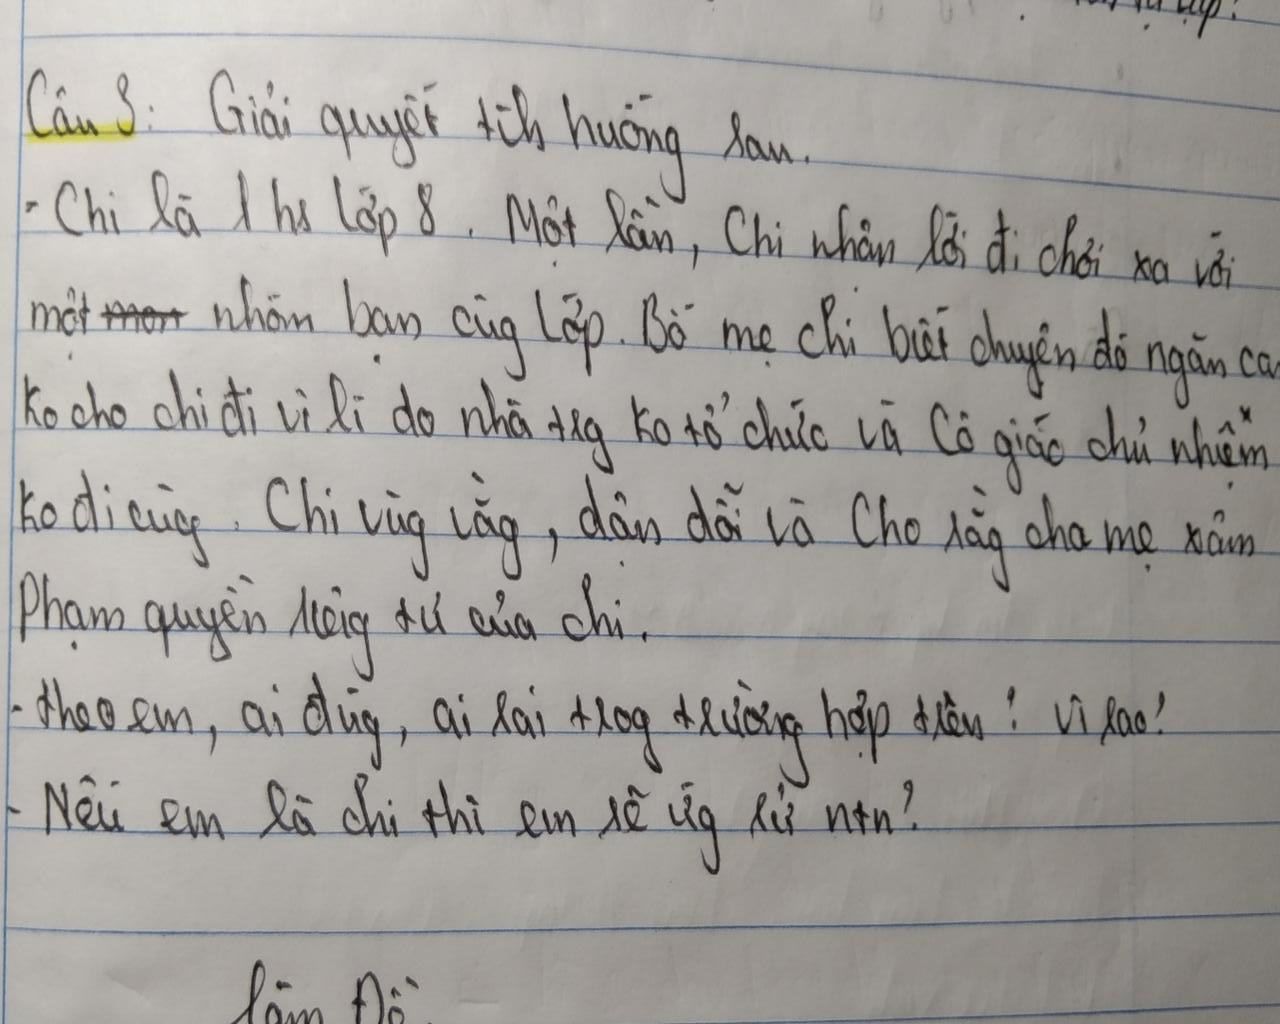 Câu 3: Giải quyết tìh huống sau.
- Chi là 1 hs lớp 8. Một lần, Chi nhận lời đi chơi xa với
một nhóm bạn cùg lớp. Bố mẹ chi biết chuyện đó ngăn cả
ko cho chi đi vì lí do nhà trg ko tổ chức và Cô giáo chủ nhiệm
ko đi cùg. Chi vùg vằg, dận dỗi và Cho rằg cha mẹ xâm
Phạm quyền riêig tư của chi.
- theo em, ai đúg, ai sai trog trường hợp trên? Vì sao?
- Nếu em là chi thì em sẽ ứg sử ntn?
làm Đề